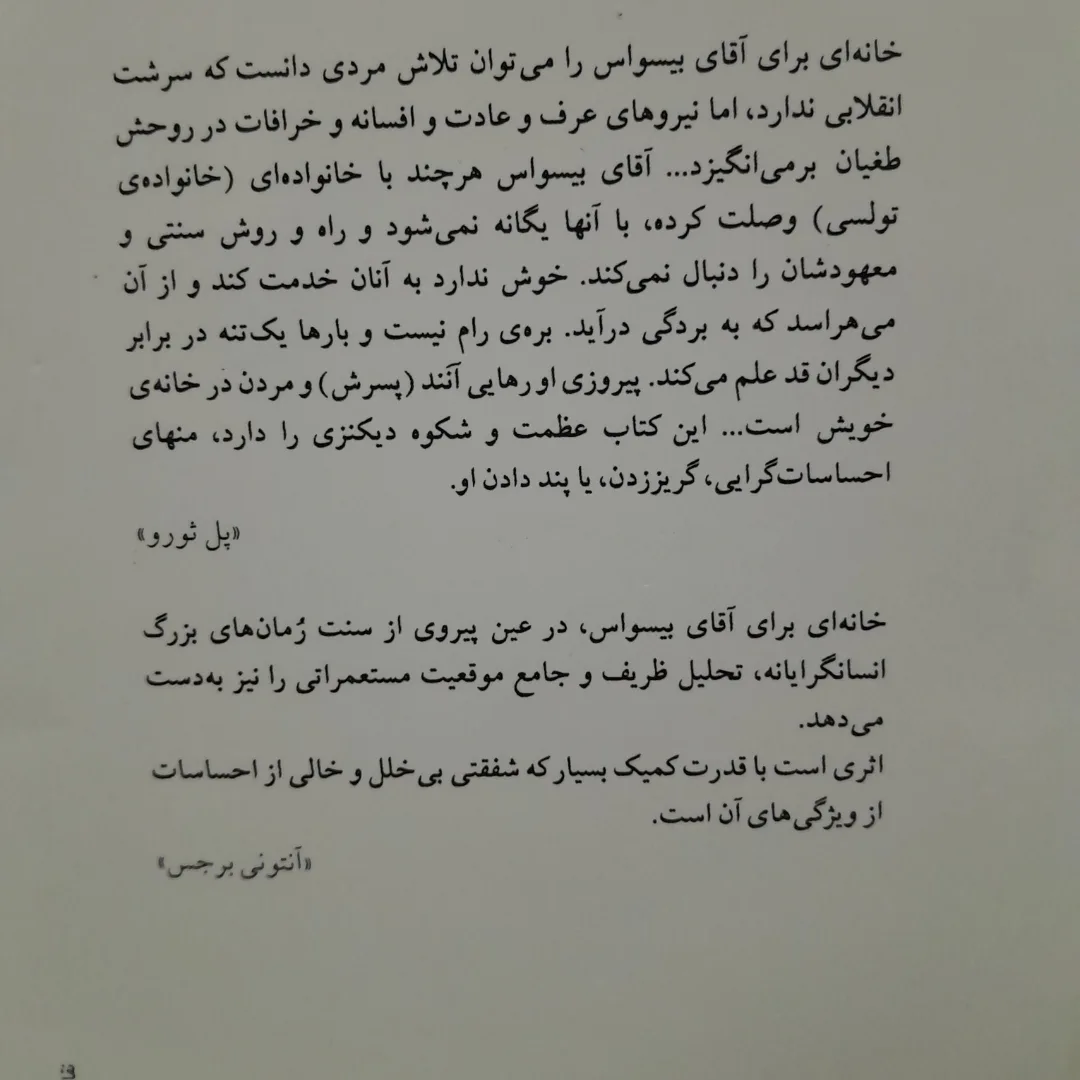 خانه‌ای برای آقای بیسواس را می‌توان تلاش مردی دانست که سرشت
انقلابی ندارد، اما نیروهای عرف و عادت و افسانه و خرافات در روحش
طغیان برمی‌انگیزد... آقای بیسواس هرچند با خانواده‌ای (خانواده‌ی
تولسی) وصلت کرده، با آنها یگانه نمی‌شود و راه و روش سنتی و
معهودشان را دنبال نمی‌کند. خوش ندارد به آنان خدمت کند و از آن
می‌هراسد که به بردگی درآید. بره‌ی رام نیست و بارها یک‌تنه در برابر
دیگران قد علم می‌کند. پیروزی او رهایی آنَند (پسرش) و مردن در خانه‌ی
خویش است... این کتاب عظمت و شکوه دیکنزی را دارد، منهای
احساسات‌گرایی، گریززدن، یا پند دادن او.
«پل ثورو»
خانه‌ای برای آقای بیسواس، در عین پیروی از سنت رُمان‌های بزرگ
انسانگرایانه، تحلیل ظریف و جامع موقعیت مستعمراتی را نیز به‌دست
می‌دهد.
اثری است با قدرت کمیک بسیار که شفقتی بی‌خلل و خالی از احساسات
از ویژگی‌های آن است.
«آنتونی برجس»